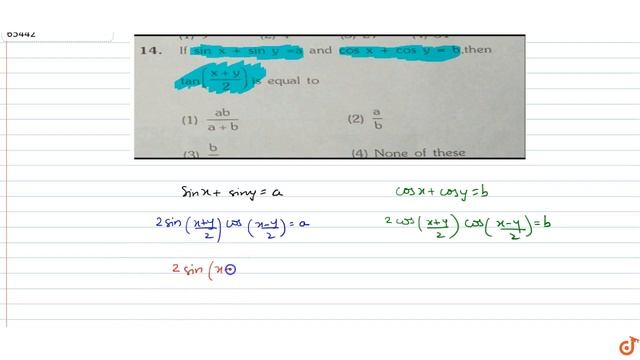 65442
14. If sin x + sin y = a and cos x + cos y = b, then
tan(x + y / 2) is equal to
(1) ab / a + b
(2) a / b
(3) b
(4) None of these
sinx + siny = a
cosx + cosy = b
2 sin (x+y / 2) cos (x-y / 2) = a
2 cos (x+y / 2) cos (x-y / 2) = b
2 sin (x+